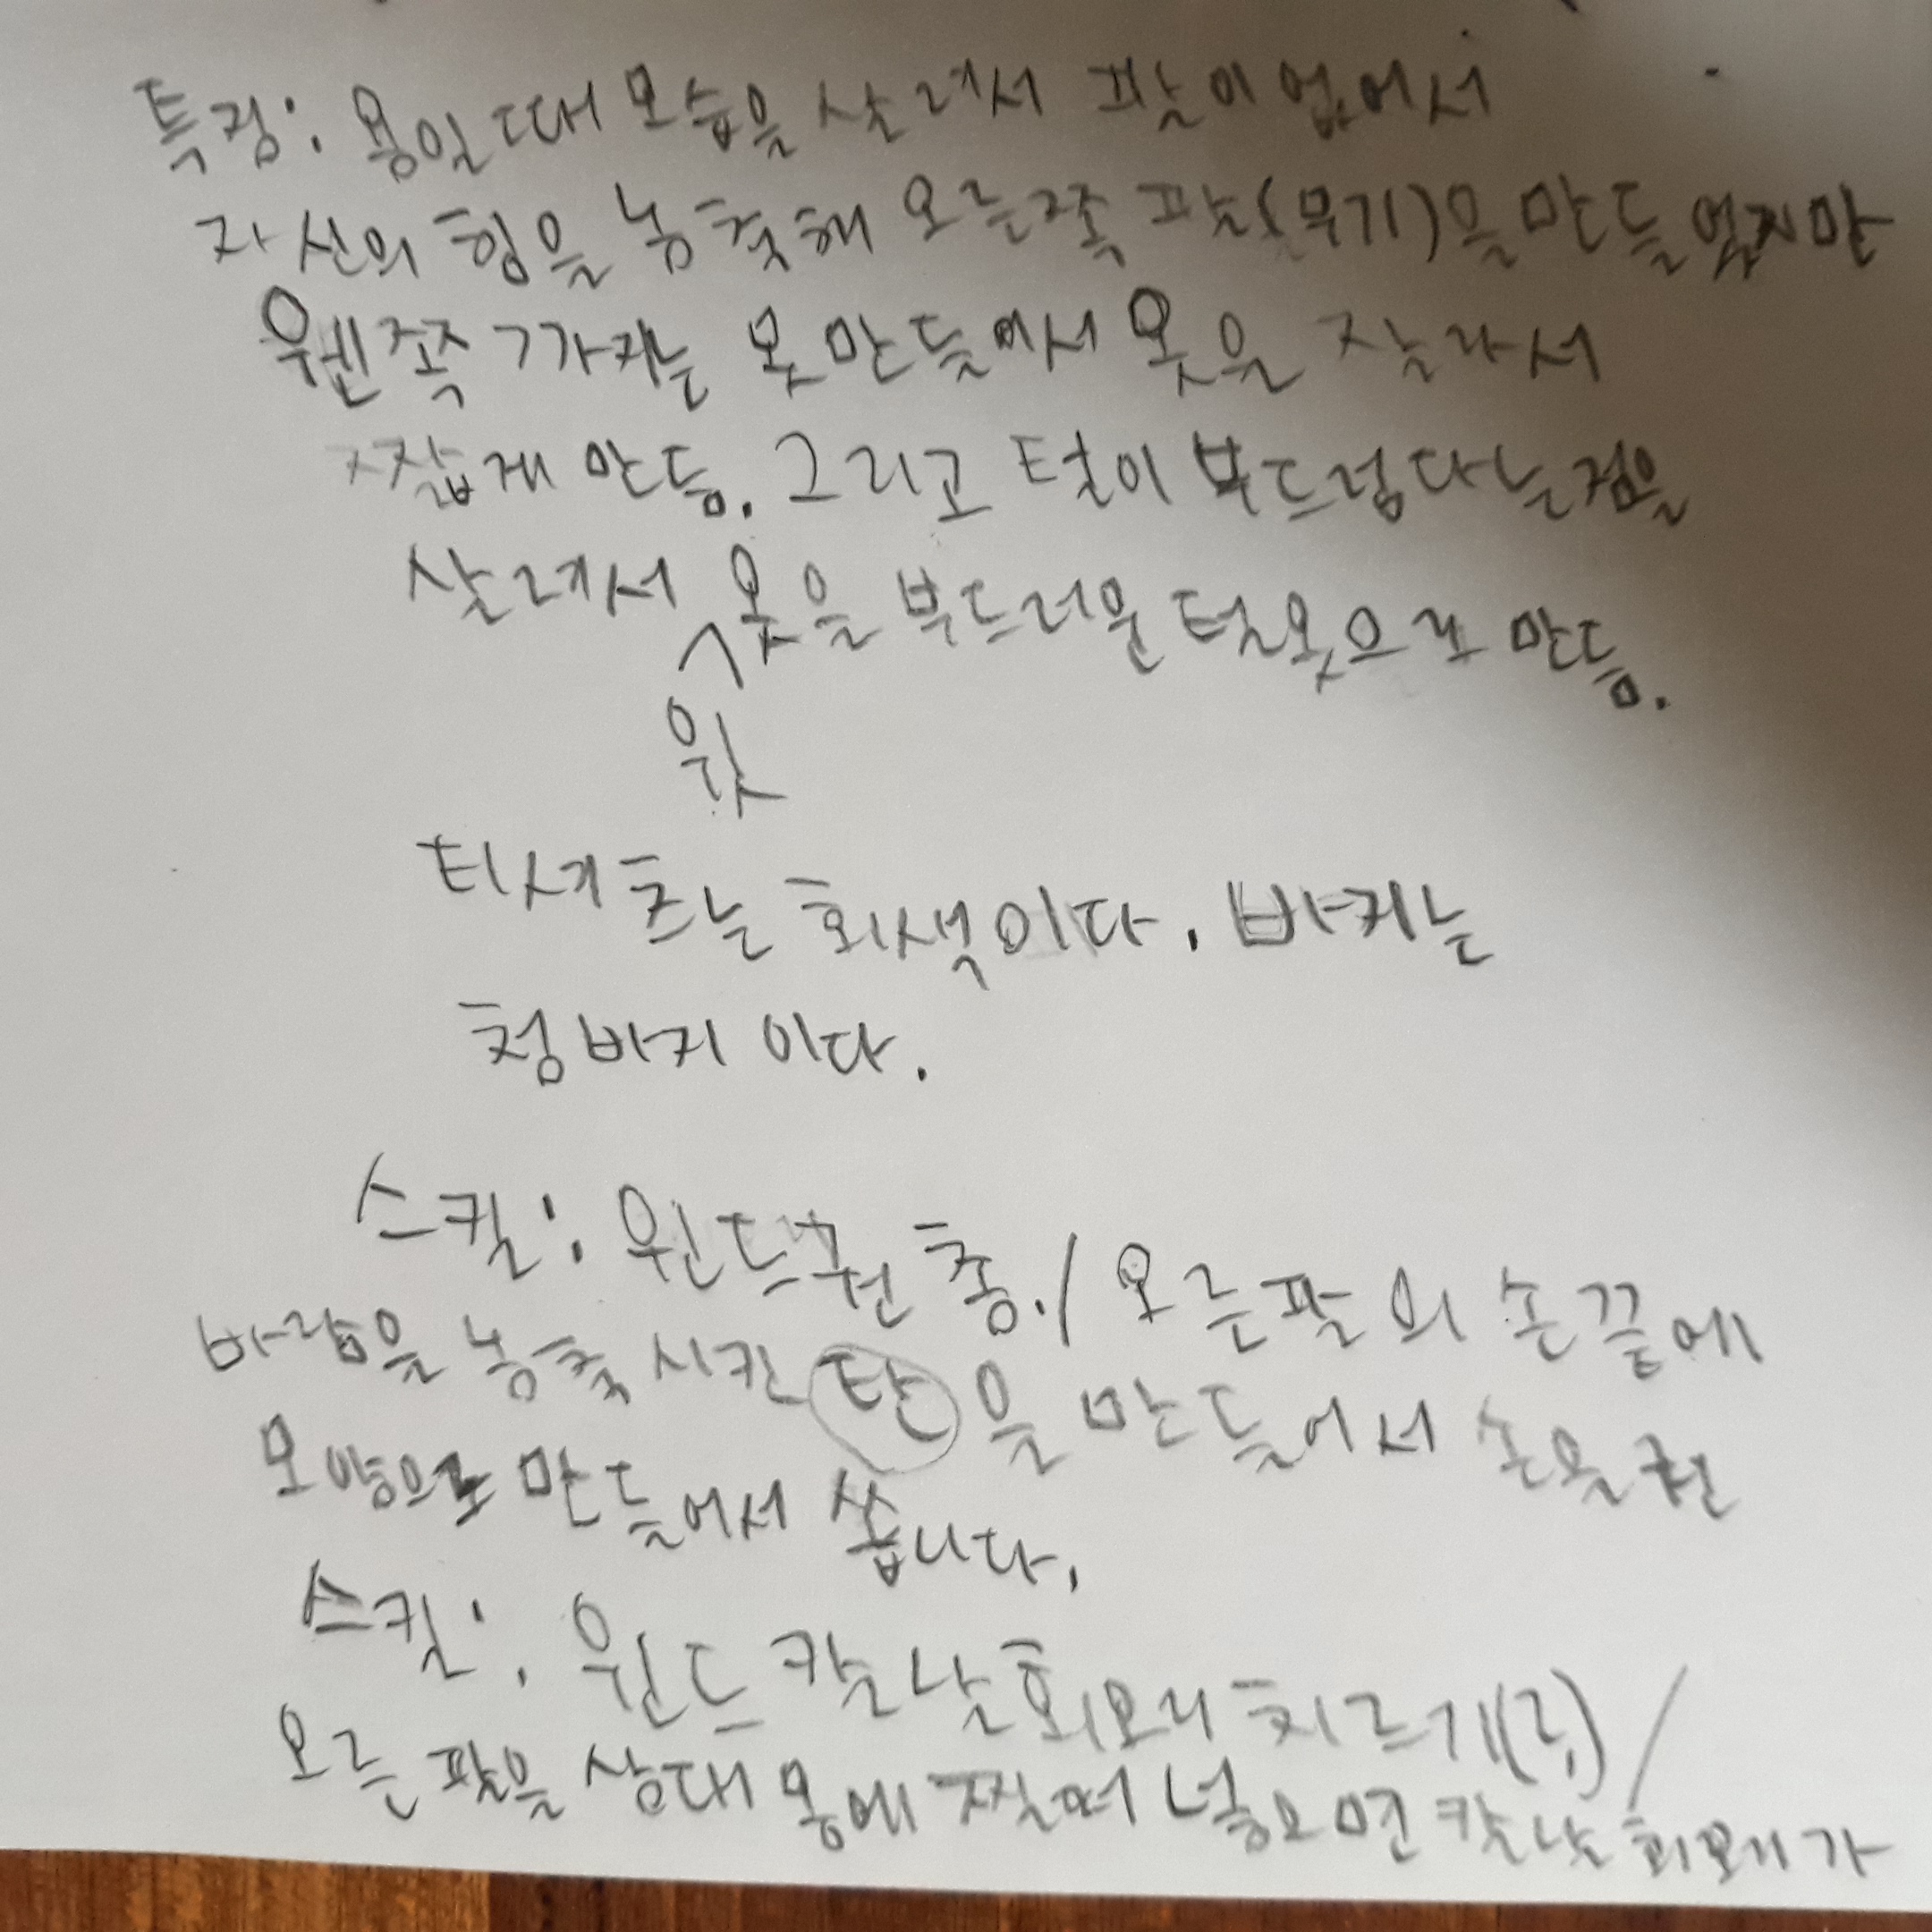 특징: 용일때 모습을 살려서 팔이 없어서
자신의 힘을 농축해 오른쪽 팔(무기)을 만들었지만
웬쪽 까지는 못 만들어서 옷을 잘라서
짧게 만듬. 그리고 털이 부드럽다는점을
살려서 옷을 부드러운 털옷으로 만듬.
윗
티셔츠는 회색이다. 바지는
청바지 이다.
스킬: 윈드권총./오른팔의 손끝에
바람을 농축시킨 탄을 만들어서 손을 권
모양으로 만들어서 쏩니다.
스킬: 윈드 칼날회오리 치르기(리)/
오른팔을 상대 몽에 찔러 넣으면 칼날 회오리가